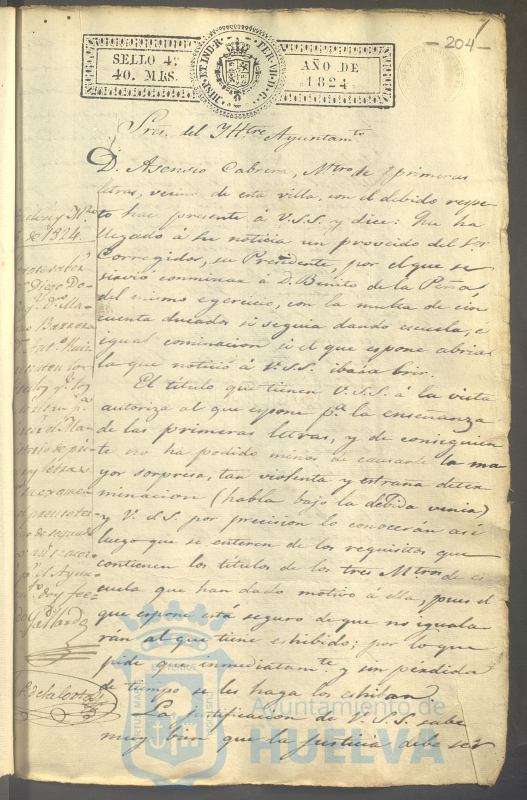 204
SELLO 4º
40. MRS.
HISP. ET IND. R. FER. VII. D. G.
AÑO DE
1824
Sres. del Yltre. Ayuntamto.
D. Asensio Cabrera, Mtro de primeras
letras, vecino de esta villa, con el debido respe-
to hace presente á V.S.S. y dice: Que ha
llegado á su noticia un proveido del Sor
Corregidor, su Presidente, por el que se
sirvió conminar á D. Benito de la Peña
del mismo egercicio, con la multa de cin
cuenta ducados si seguia dando escuela, e
igual cominacion si el que espone abria
la que notició á V.S.S. iba á abrir.
El titulo que tienen V.S.S. á la vista
autoriza al que espone pa. la enseñanza
de las primeras letras, y de consiguien
te no ha podido menos de causarle la ma
yor sorpresa, tan violenta y estraña deter
minacion (habla bajo la debida venia)
y V.S.S. por precision lo conocerán asi
luego que se enteren de los requisitos que
contienen los titulos de los tres Mtros de es
cuela que han dado motivo á ella, pues el
que espone está seguro de que no iguala
ran al que tiene eshibido; por lo que
pide que inmediatamte. y sin pérdida
de tiempo se les haga los eshiban
La justificacion de V.S.S. sabe
muy bien que la justicia debe ser
de 1824
Diego
Barrera
Gallardo
Ayuntamiento de
HUELVA